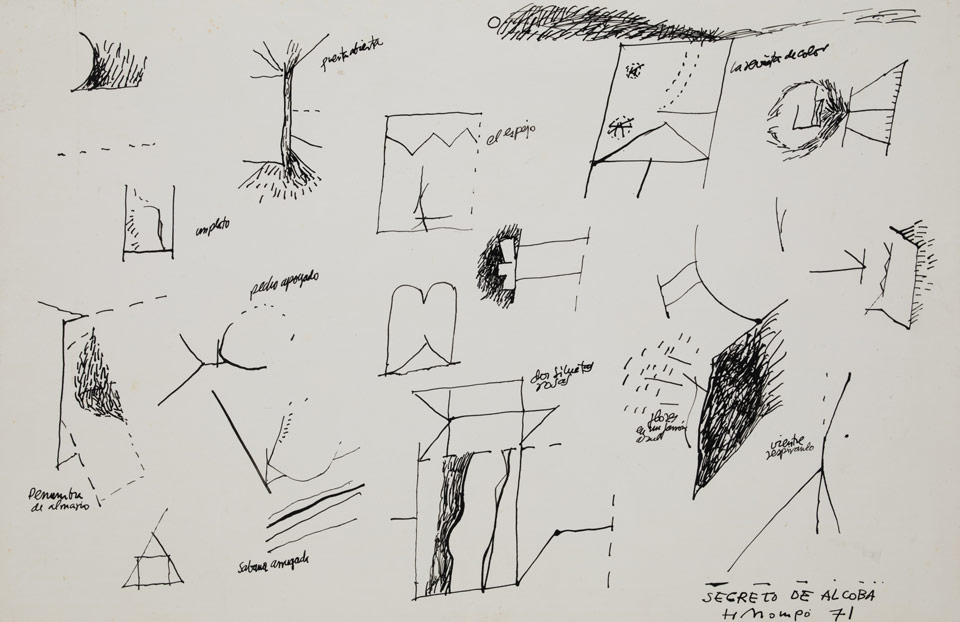 puerta abierta
la revista de color
el espejo
un plato
pecho apoyado
dos siluetas
rosas
flores
en un jarrón
azul
vientre
respirando
Penumbra
de armario
Sabana arrugada
SEGRETO DE ALCOBA
H Mompó 71